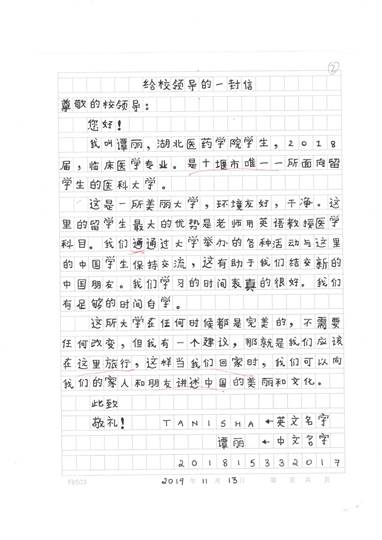 ②
给校领导的一封信
尊敬的校领导:
您好!
我叫谭丽,湖北医药学院学生,2018
届,临床医学专业。是十堰市唯一一所面向留
学生的医科大学。
这是一所美丽大学,环境友好,干净。这
里的留学生最大的优势是老师用英语教授医学
科目。我们通通过大学举办的各种活动与这里
的中国学生保持交流,这有助于我们结交新的
中国朋友。我们学习的时间表真的很好。我们
有足够的时间自学。
这所大学在任何时候都是完美的,不需要
任何改变,但我有一个建议,那就是我们应该
在这里旅行,这样当我们回家时,我们可以向
我们的家人和朋友讲述中国的美丽和文化。
此致
敬礼! TANISHA ←英文名字
谭丽 ←中文名字
201815332017
2019 年 11 月 13 日 第 页 共 页